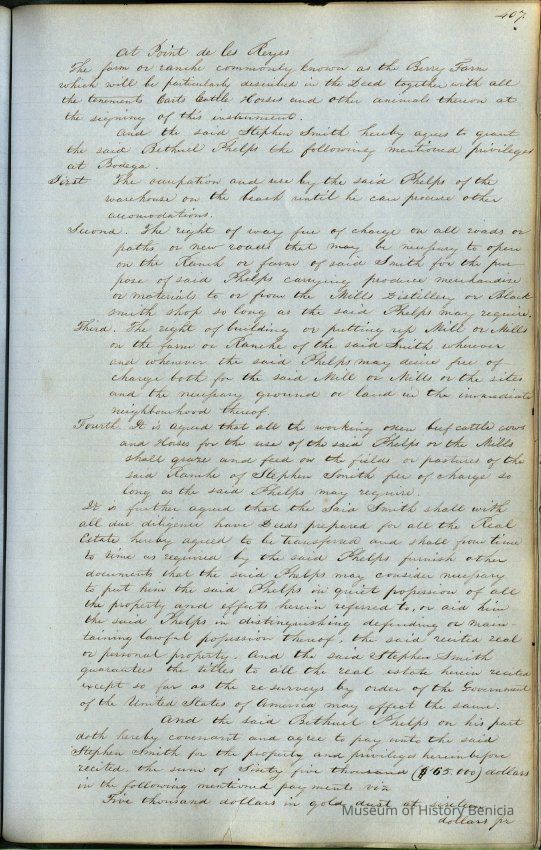 407
At Point de los Reyes
The farm or ranche commonly known as the Berry Farm
which will be particularly described in the Deed together with all
the tenements Carts Cattle Horses and other animals thereon at
the signing of this instrument.
And the said Stephen Smith hereby agrees to grant
the said Bethuel Phelps the following mentioned privileges
at Bodega.
First The occupation and use by the said Phelps of the
warehouse on the beach until he can procure other
accomodations.
Second. The right of way free of charge on all roads or
paths or new roads that may be necessary to open
on the Ranch or farm of said Smith for the pur
pose of said Phelps carrying produce merchandise
or materials to or from the Mills Distillery or Black
smith shop so long as the said Phelps may require.
Third. The right of building or putting up Mill or Mills
on the farm or Ranche of the said Smith wherever
and whenever the said Phelps may desire free of
charge both for the said Mill or Mills or the sites
and the necessary ground or land in the immediate
neighbourhood thereof.
Fourth It is agreed that all the working oxen beef cattle cows
and Horses for the use of the said Phelps or the Mills
shall graze and feed on the fields or pastures of the
said Ranche of Stephen Smith free of charge so
long as the said Phelps may require.
It is further agreed that the Said Smith shall with
all due diligence have Deeds prepared for all the Real
Estate hereby agreed to be transferred and shall from time
to time as required by the said Phelps furnish other
documents that the said Phelps may consider necessary
to put him the said Phelps in quiet possession of all
the property and effects herein referred to, or aid him
the said Phelps in distinguishing defending or main-
taining lawful possession thereof, the said recited real
or personal property. And the said Stephen Smith
guarantees the titles to all the real estate herein recited
except so far as the re surveys by order of the Government
of the United States of America may effect the same.
And the said Bethuel Phelps on his part
doth hereby covenant and agree to pay unto the said
Stephen Smith for the property and privileges hereinbefore
recited, the sum of Sixty five thousand ($65.000) dollars
in the following mentioned payments viz
Five thousand dollars in gold dust at sixteen
dollars pr
Museum of History Benicia